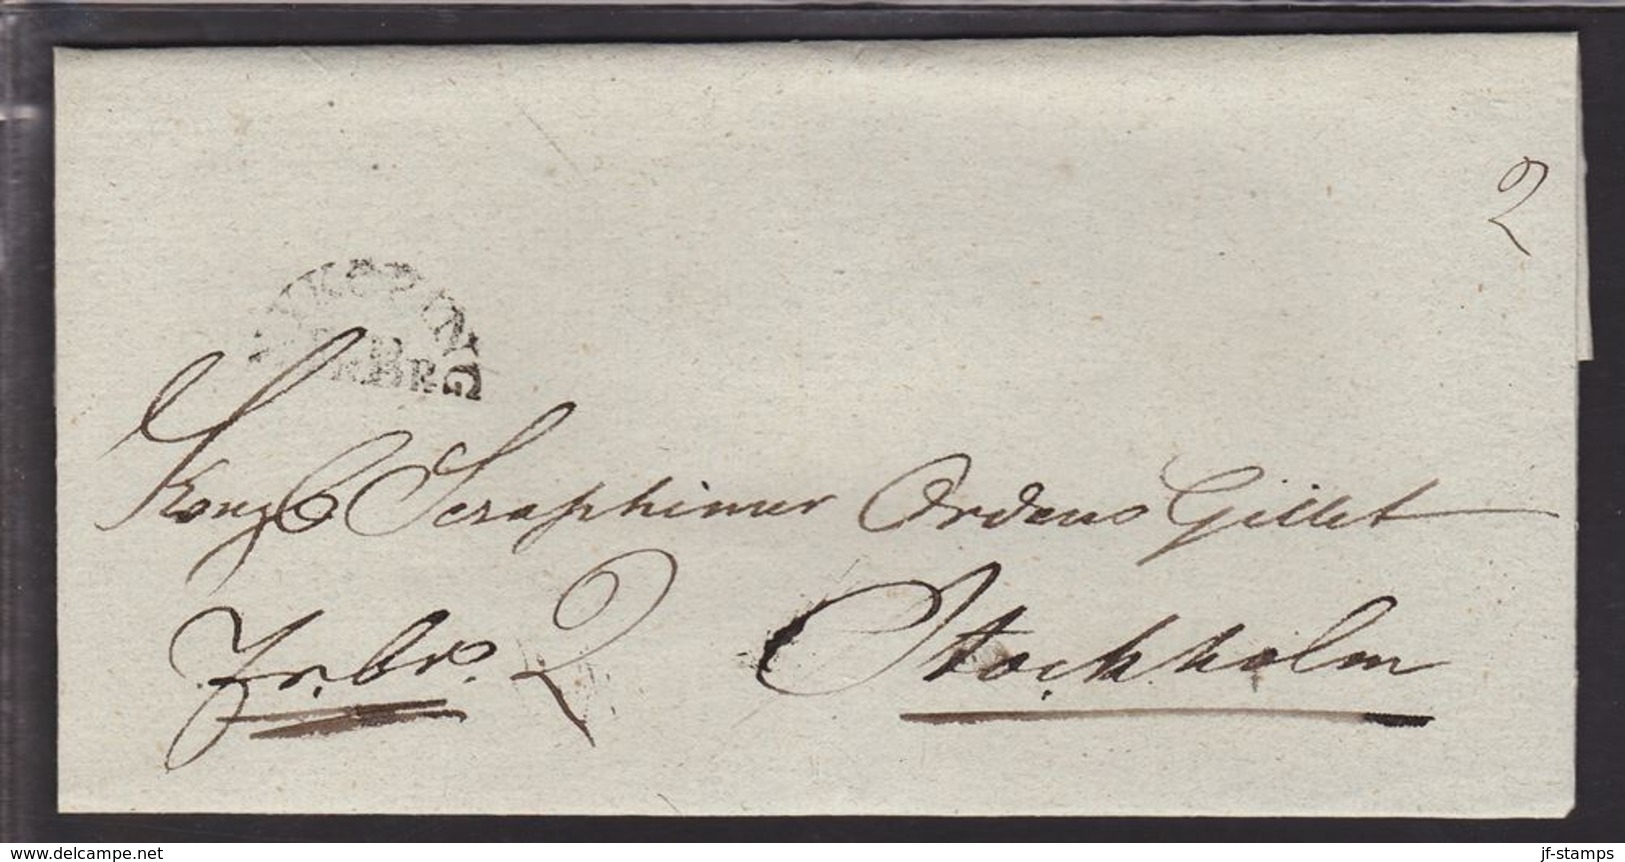 2
KÖPING
FRBRF
Kongl Seraphimer Ordens Gillet
Fr. br. 2 Stockholm
www.delcampe.net
jf-stamps